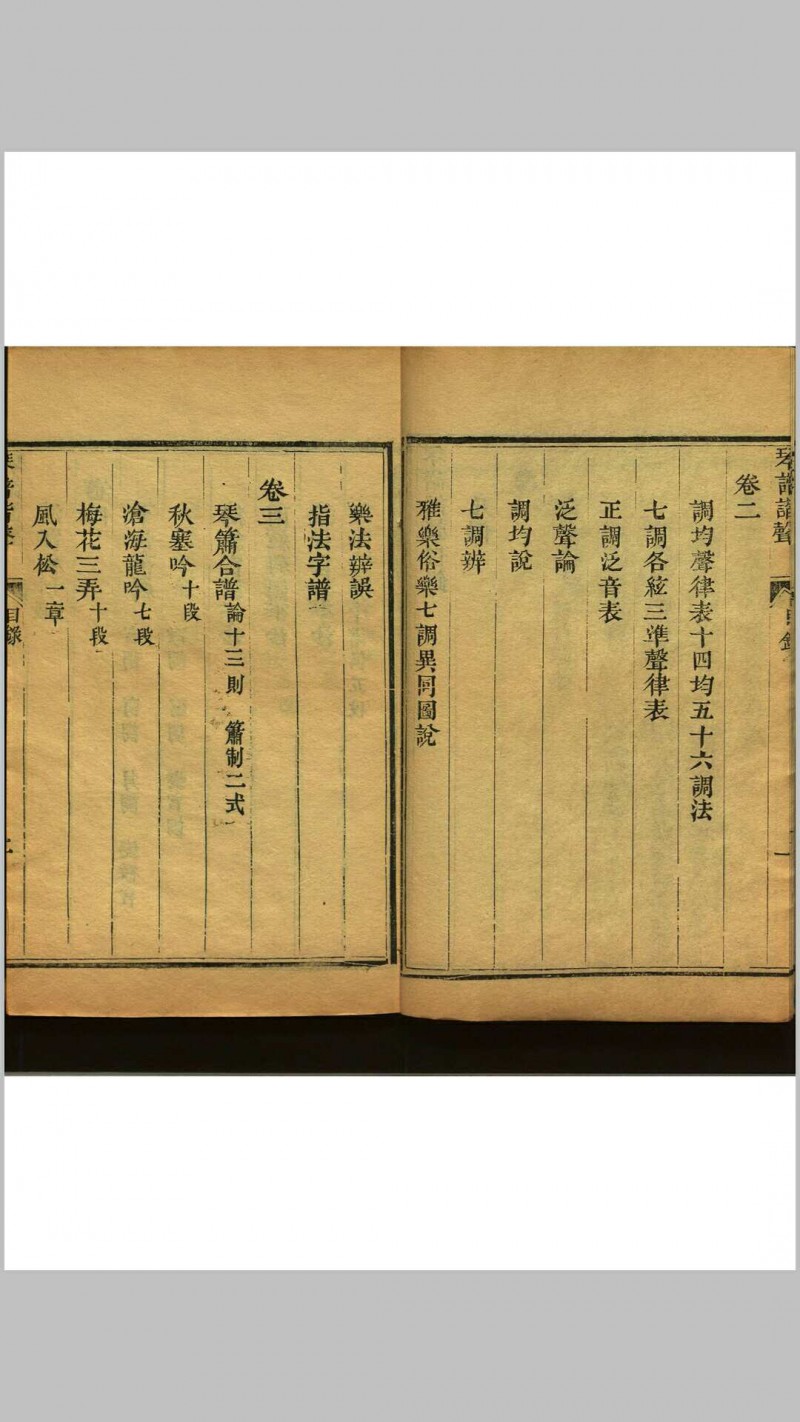 琴譜諧聲
目錄
一
卷二
調均聲律表十四均五十六調法
七調各絃三準聲律表
正調泛音表
泛聲論
調均說
七調辨
雅樂俗樂七調異同圖說
樂法辨誤
指法字譜
卷三
琴簫合譜論十三則 簫制二式
秋塞吟十段
滄海龍吟七段
梅花三弄十段
風入松一章
目錄
二